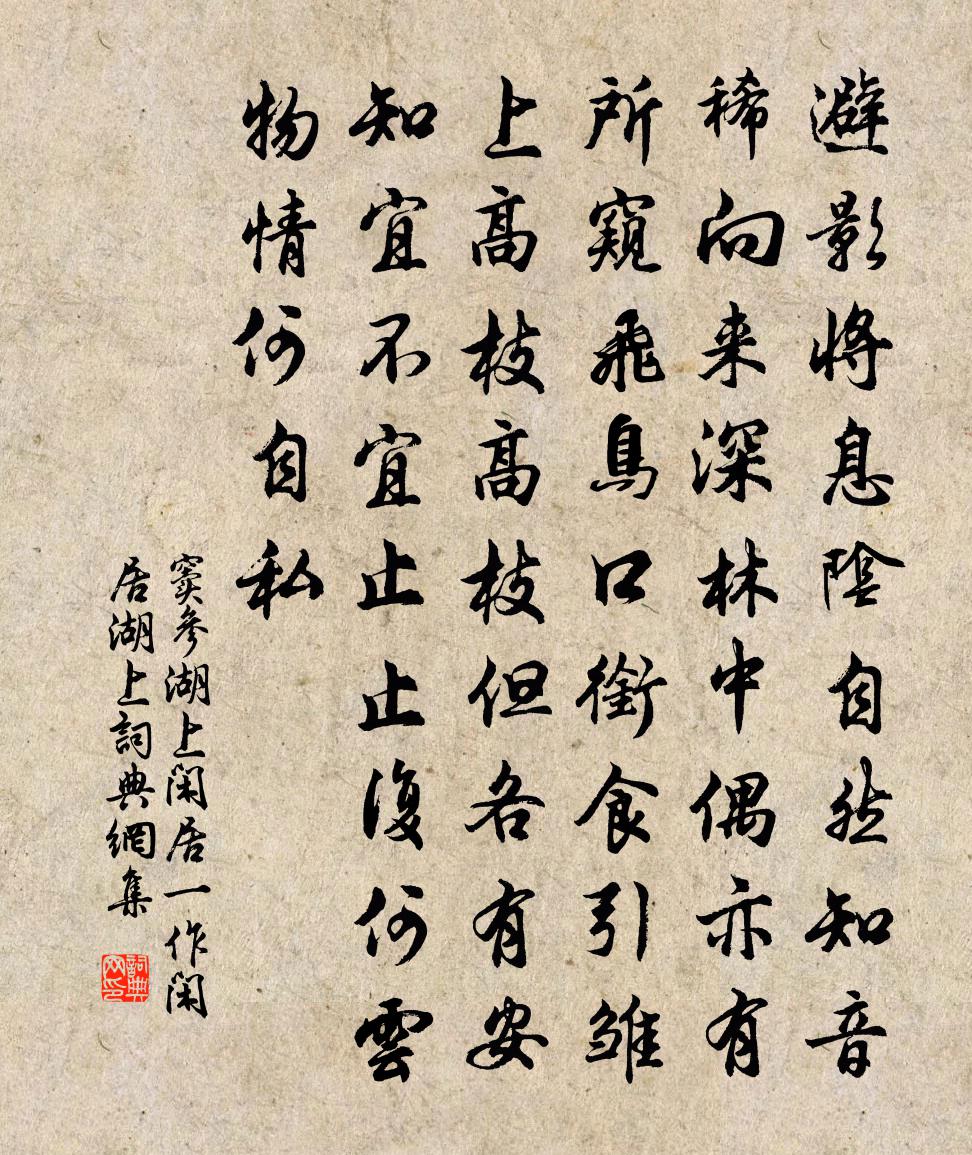 避影將息陰自然知音
稀向来深林中偶亦有
所窺飛鳥口銜食引雏
上高枝高枝但各有安
知宜不宜止止復何雲
物情何自私
窦參湖上閑居一作閑
居湖上詞典網集
詞典网印